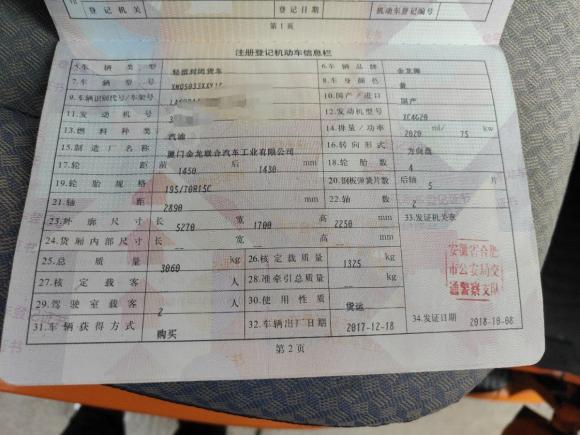 登记机关 登记日期 机动车登记编号
第1页
注册登记机动车信息栏
5.车辆类型 轻型封闭货车 6.车辆品牌 金龙牌
7.车辆型号 8.车身颜色 黄
9.车辆识别代号/车架号 10.国产/进口 国产
11.发动机号 12.发动机型号 XC4G20
13.燃料种类 汽油 14.排量/功率 2020 ml/ 75 kw
15.制造厂名称 厦门金龙联合汽车工业有限公司 16.转向形式 方向盘
17.轮距 前 1450 后 1430 mm 18.轮胎数 4
19.轮胎规格 195/70R15C 20.钢板弹簧片数 后轴 5 片
21.轴距 2890 mm 22.轴数 2
23.外廓尺寸 长 5270 宽 1700 高 2250 mm 33.发证机关章
24.货厢内部尺寸 长 -- 宽 -- 高 -- mm
25.总质量 3060 kg 26.核定载质量 1325 kg
27.核定载客 -- 人 28.准牵引总质量 -- kg
29.驾驶室载客 2 人 30.使用性质 货运
31.车辆获得方式 购买 32.车辆出厂日期 2017-12-18 34.发证日期 2018-10-08
安徽省合肥
市公安局交
通警察支队
第2页